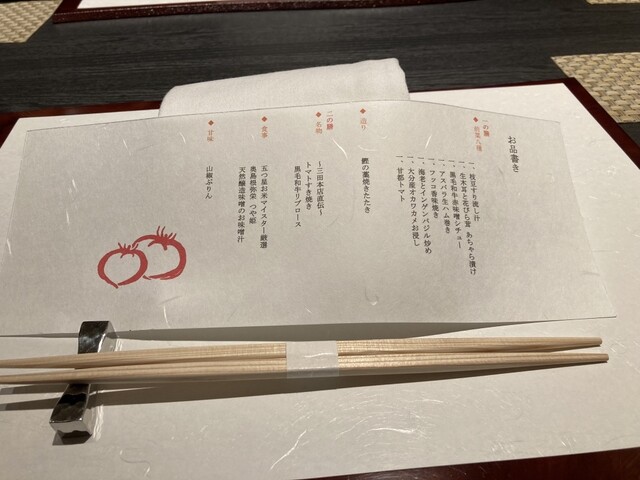 お品書き
一の膳
◆ 前菜八種
一、枝豆すり流し汁
一、生木耳と花びら茸 あちゃら漬け
一、黒毛和牛赤味噌シチュー
一、アスパラ生ハム巻き
一、フッコ香味焼き
一、海老とインゲンバジル炒め
一、大分産オカワカメお浸し
一、甘都トマト
◆ 造り
鰹の藁焼きたたき
二の膳
◆ 名物
～三田本店直伝～
トマトすき焼き
黒毛和牛リブロース
◆ 食事
五つ星お米マイスター厳選
奥島根弥栄 つや姫
天然醸造味噌のお味噌汁
◆ 甘味
山椒ぷりん